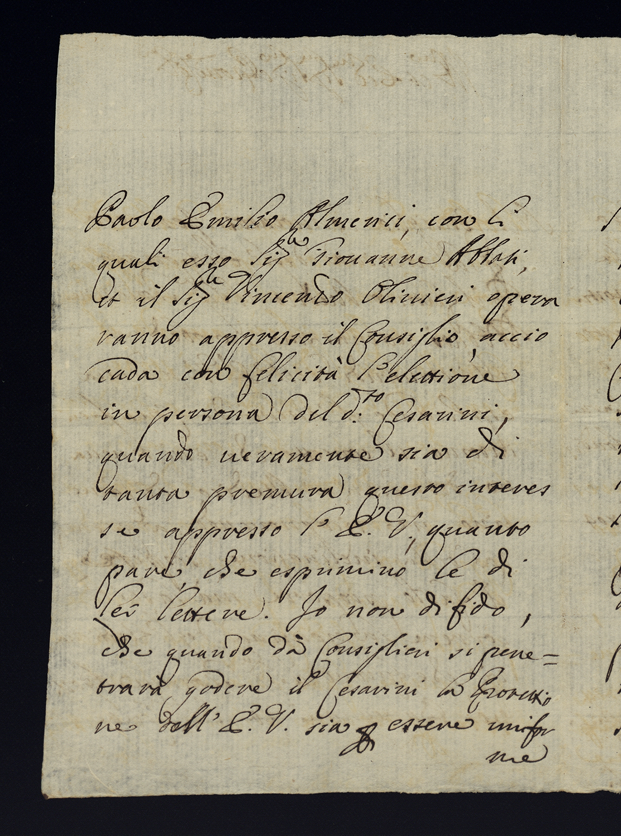 Paolo Emilio Almerici, con li
quali esso Sig.re Giovanne Abbati,
et il Sig.re Vincenzo Olivieri opera
ranno appresso il Consiglio, accio
cada con felicità l'elettione
in persona del d.to Cesarini,
quando veramente sia di
tanta premura questo interes
se appresso l'E. V., quanto
pare, che esprimino le di
lei lettere. Io non difido,
che quando dà Consiglieri si pene=
trarà godere il Cesarini la Protettio
ne dell' E. V. sia p essere unifor
me